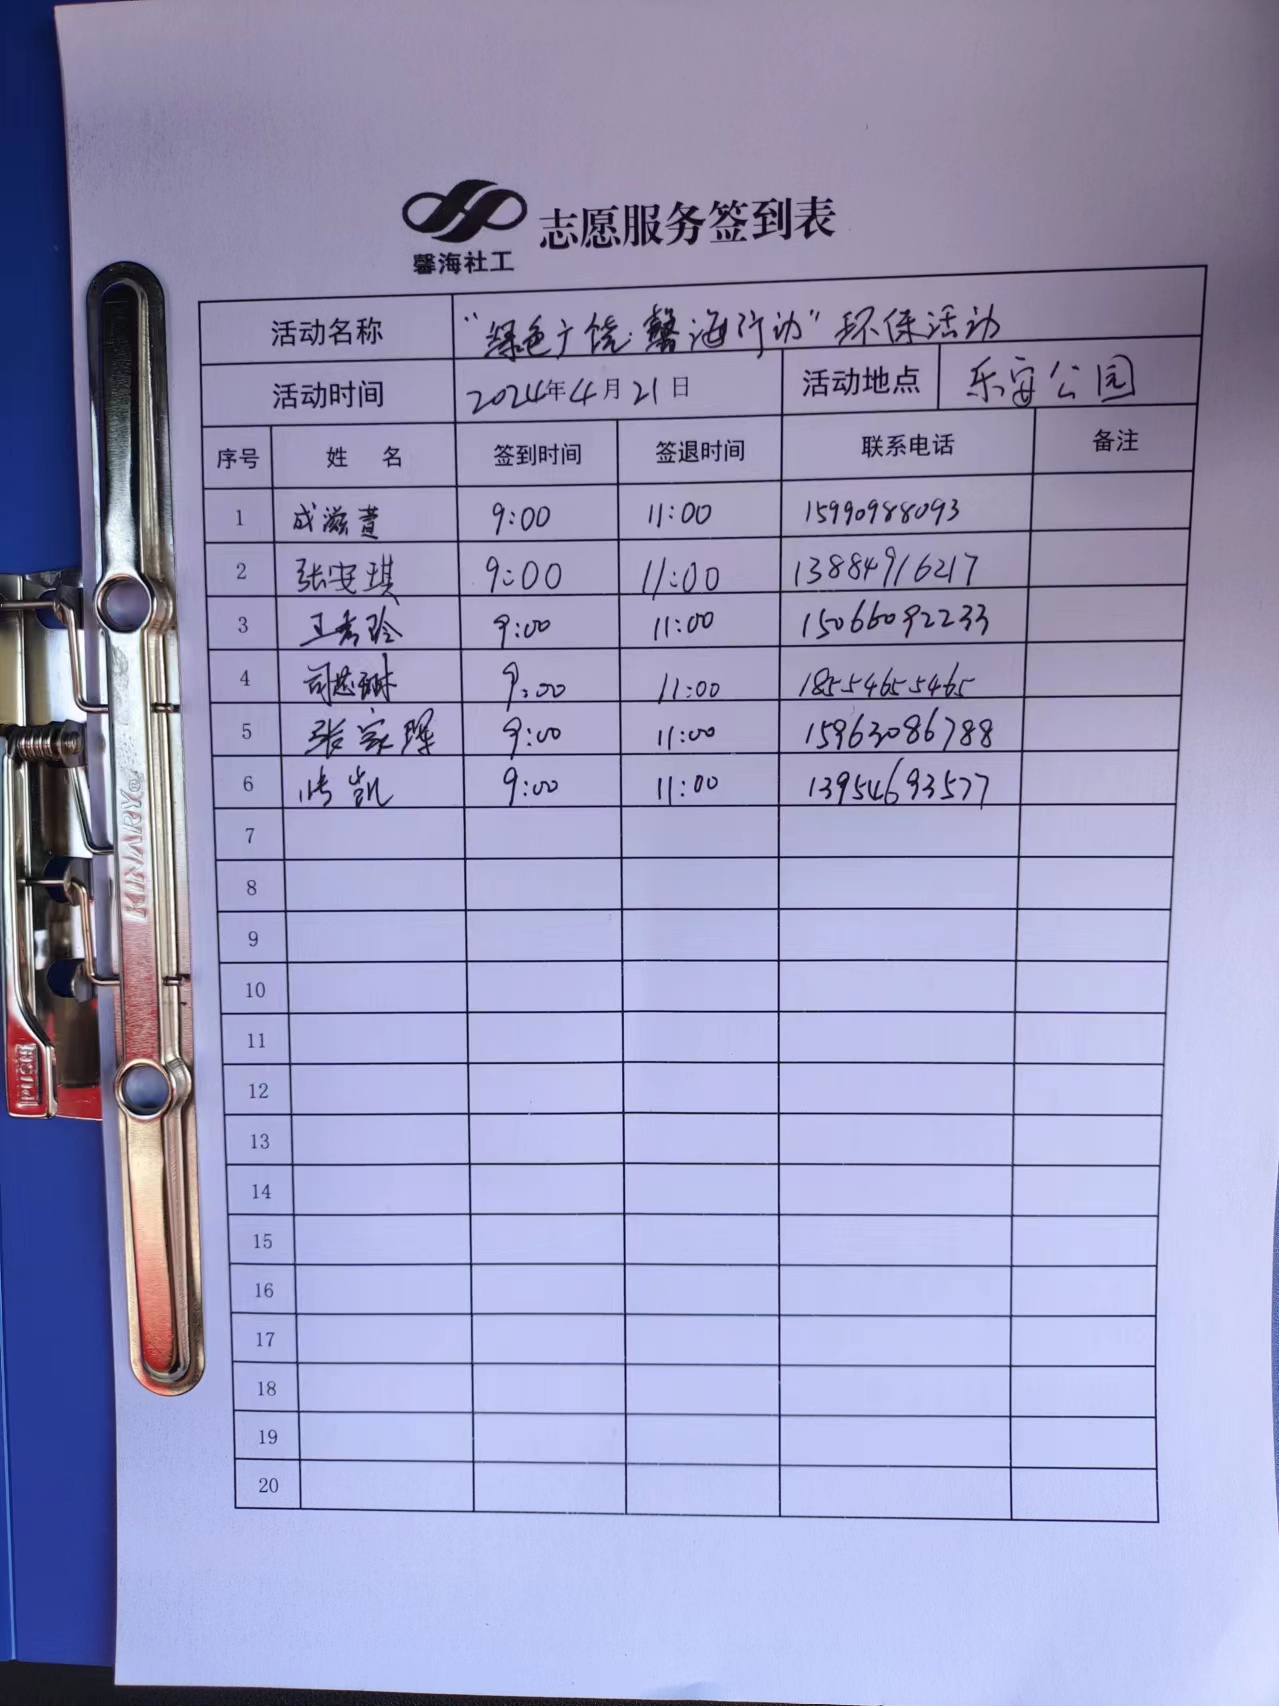 馨海社工
志愿服务签到表
活动名称 “绿色广饶·馨海行动”环保活动
活动时间 2024年4月21日 活动地点 乐安公园
序号 姓 名 签到时间 签退时间 联系电话 备注
1 成滋萱 9:00 11:00 15990988093
2 张安琪 9:00 11:00 13884916217
3 王秀玲 9:00 11:00 15066092233
4 9:00 11:00 18554655465
5 张家琿 9:00 11:00 15963086788
6 凯 9:00 11:00 13954693577
7
8
9
10
11
12
13
14
15
16
17
18
19
20